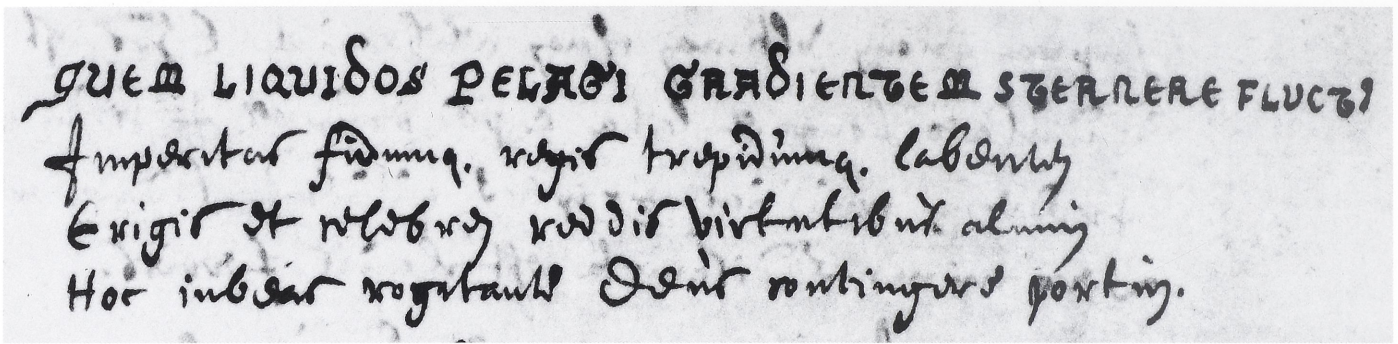 QUEM LIQUIDOS PELAGI GRADIENTEM STERNERE FLUCT9
Imperitas fidumq. regis trepidumq. labentẽ
Erigis et celebrẽ reddis virtutibus almũ
Hoc iubeas rogitantẽ Deus contingere portũ.